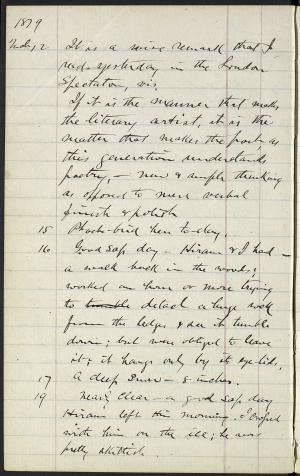 1879
12. It is a wise remark that I
read yesterday in the London
Spectator, viz,
If it is the manner that makes
the literary artist, it is the
matter that makes the poet as
this generation understands
poetry, — new & ample thinking
as opposed to mere verbal
finish & polish
15 Phoebe-bird here to-day.
16 Good Sap day — Hiram & I had
a walk back in the woods;
worked an hour or more trying
to detach a huge rock
from the ledge & see it tumble
down; but were obliged to leave
it; it hangs only by its eye-lids.
17 A deep Snow — 8 inches.
19 Nearly clear — a good sap day
Hiram left this morning. I crossed
with him on the ice; he was
pretty skittish.